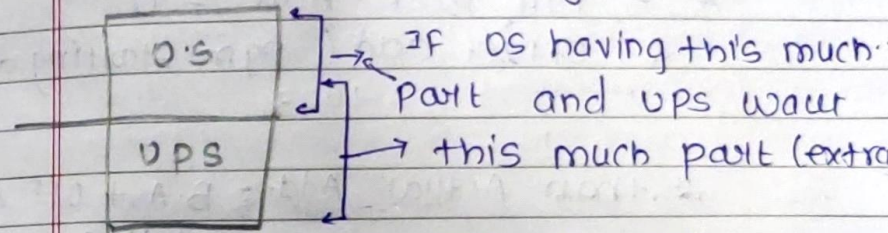 O.S
If OS having this much
part and UPS want
UPS
this much part (extra